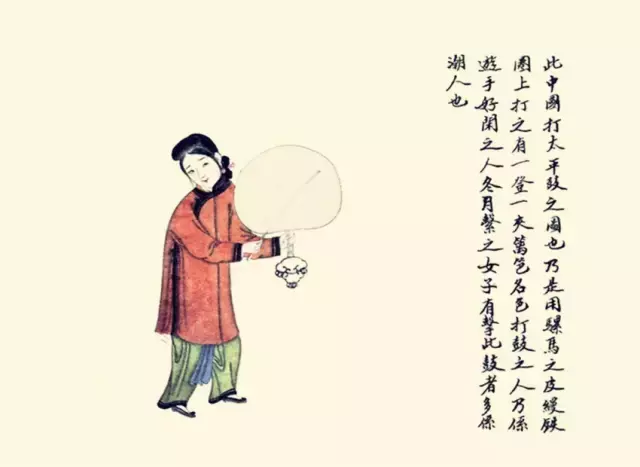 此中國打太平鼓之圖也乃是用騾馬之皮縵鉄
圈上打之有一登一夾篱笆名色打鼓之人乃係
遊手好閑之人冬月擊之女子有擊此鼓者多係
潮人也